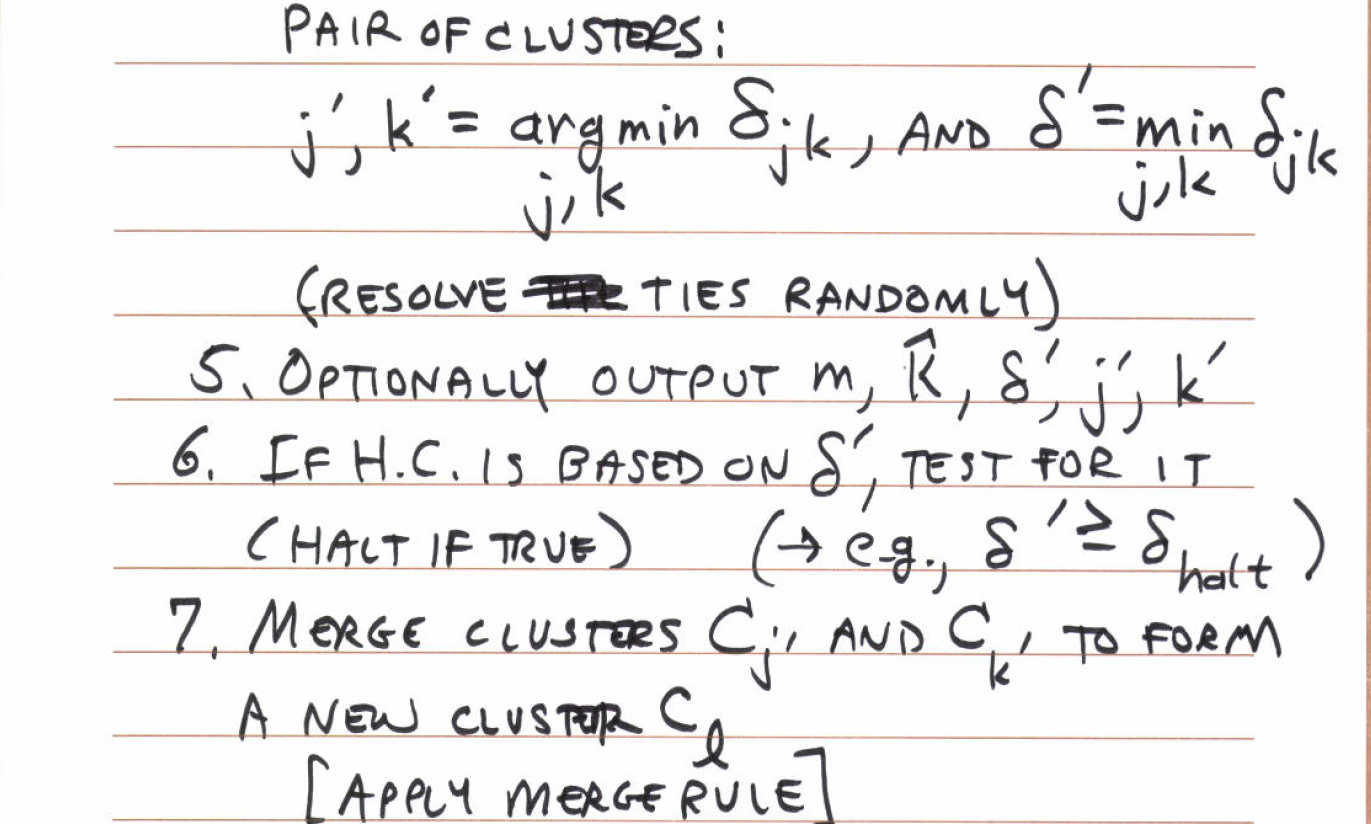 PAIR OF CLUSTERS:
j′, k′ = argmin δjk, AND δ′ = min δjk
j,k j,k
(RESOLVE TIES RANDOMLY)
5. OPTIONALLY OUTPUT m, K̂, δ′, j′, k′
6. IF H.C. IS BASED ON δ′, TEST FOR IT
(HALT IF TRUE) (→ e.g., δ′ ≥ δhalt)
7. MERGE CLUSTERS Cj′ AND Ck′ TO FORM
A NEW CLUSTER Cℓ
[APPLY MERGE RULE]